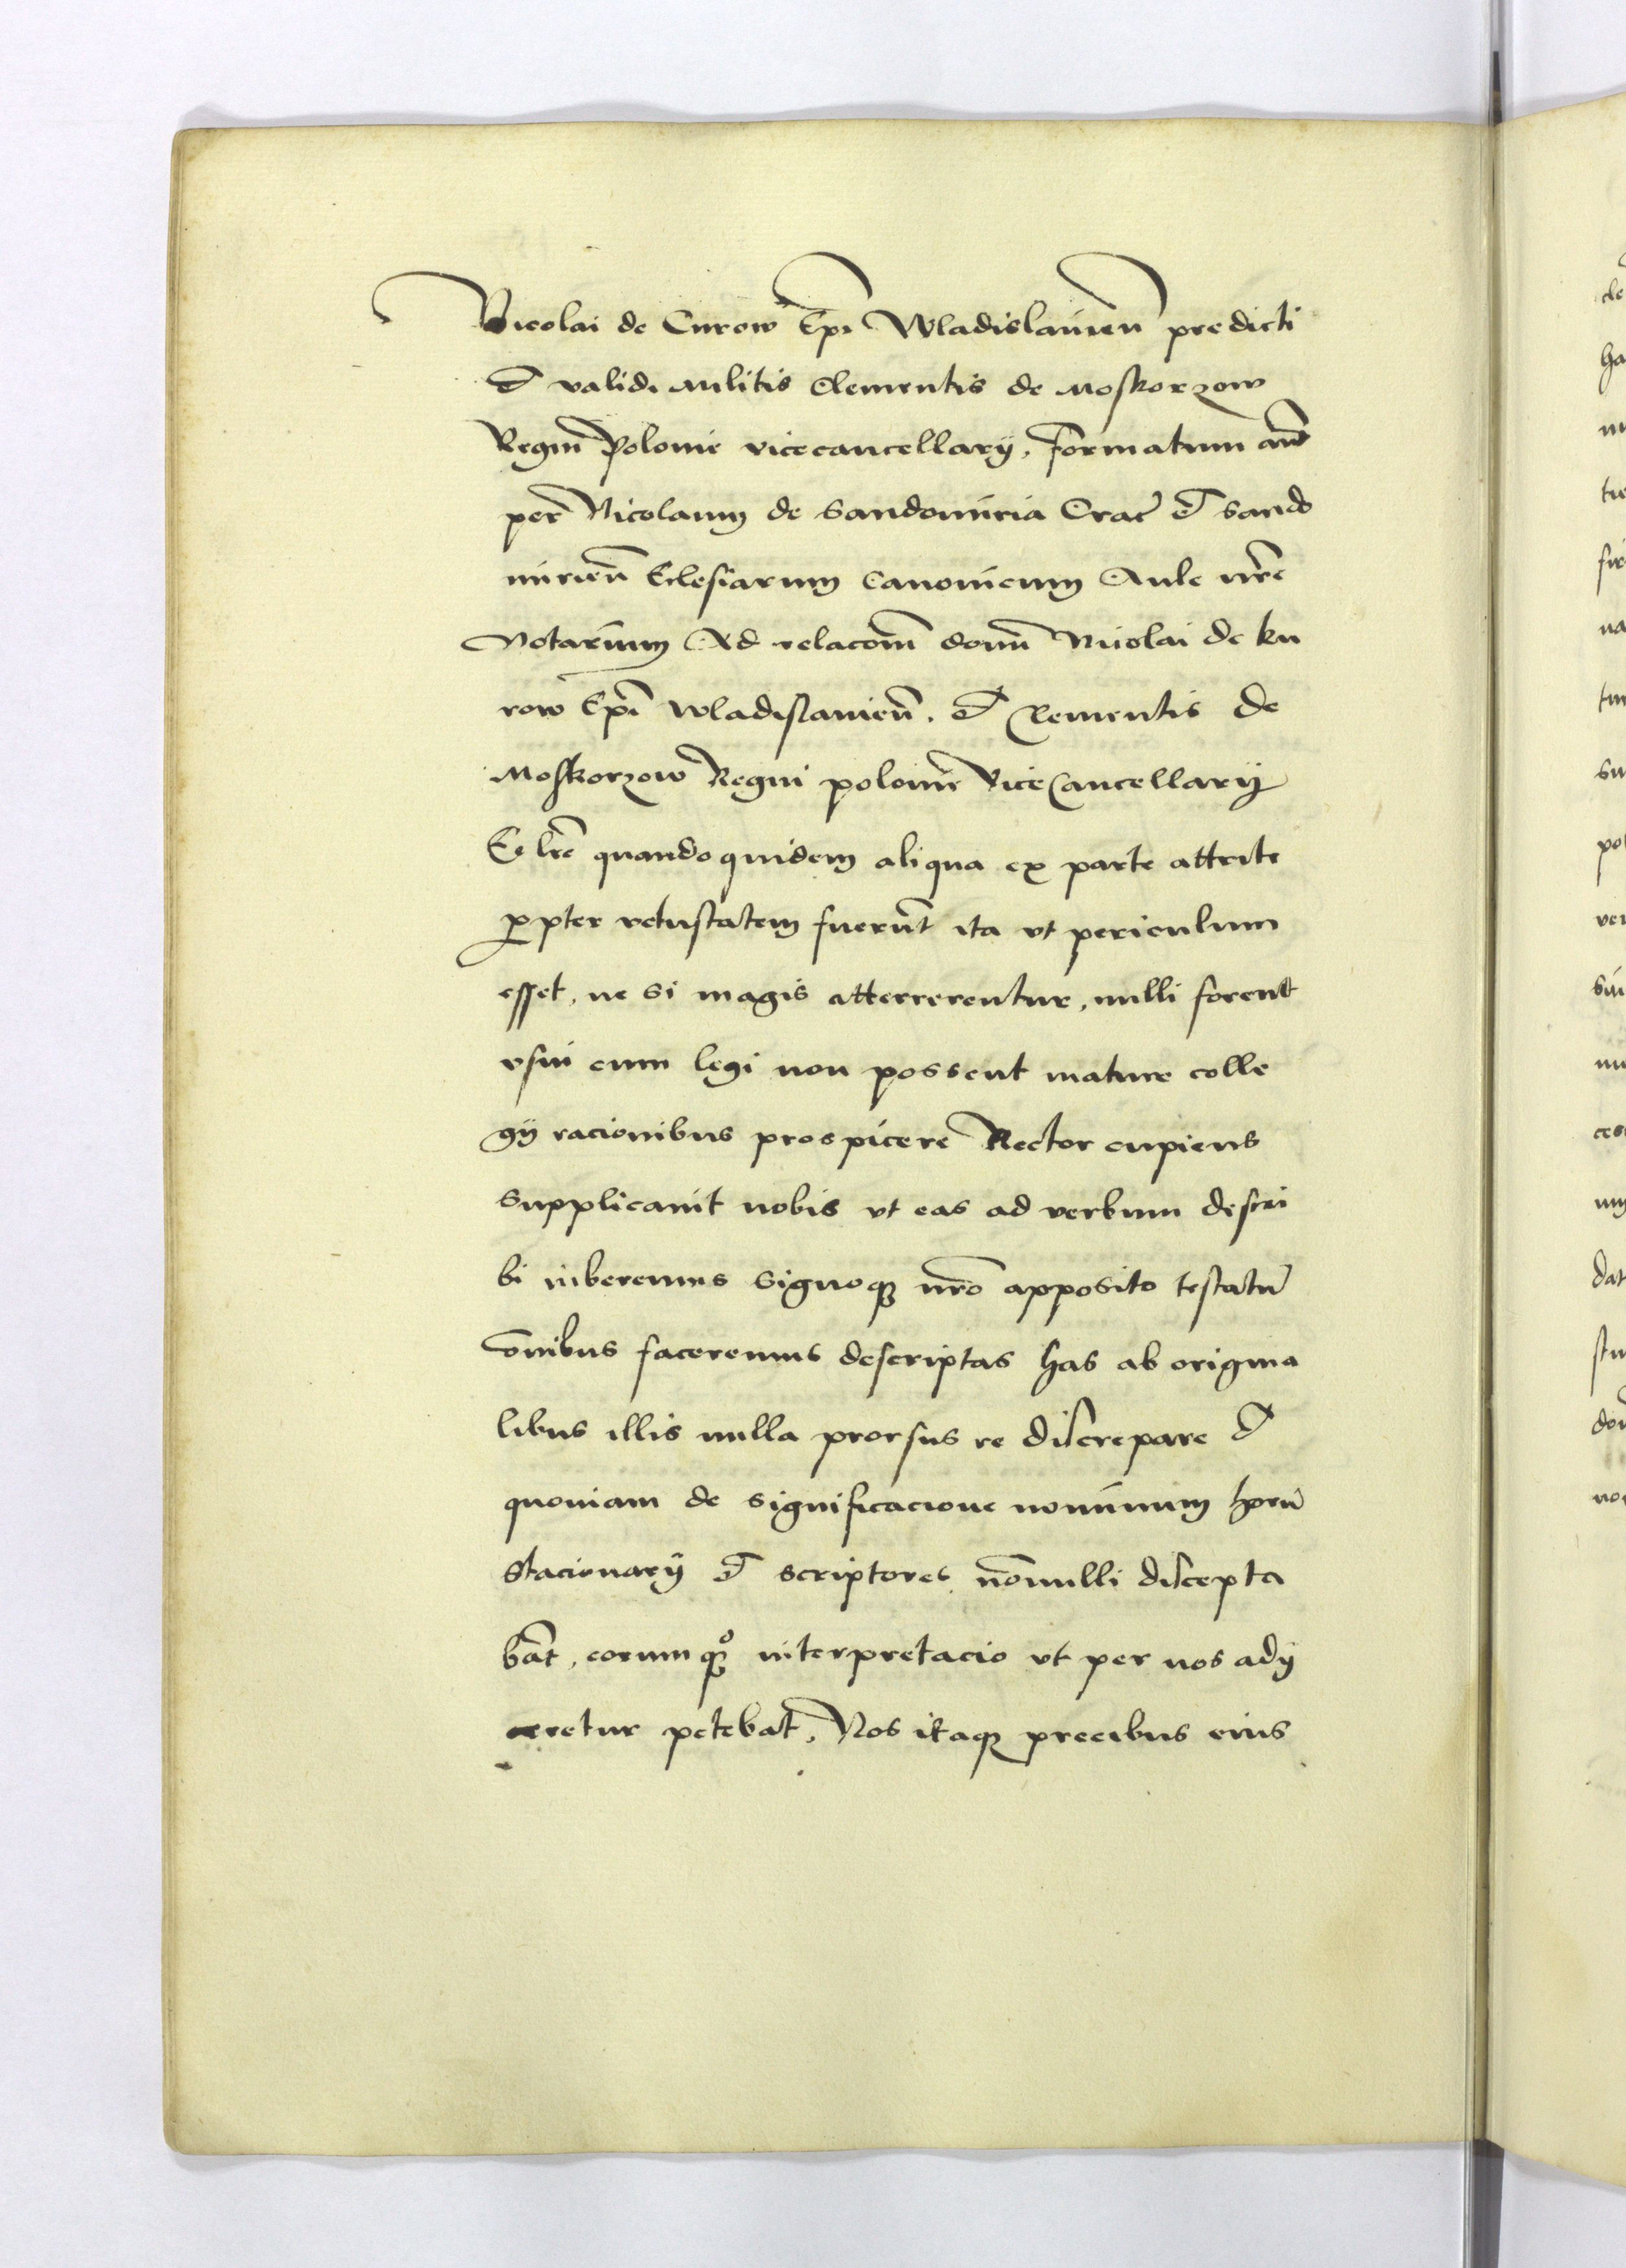 Nicolai de Curow Epi Wladislauien̄ predicti
et validi militis Clementis de Moskorzow
Regni Polonie vicecancellarij, formatum aut̄
per Nicolaum de Sandomiria Crac̄ et Sando
mirien̄ Eclesiarum Canonicum Aule nr̄e
Notarium Ad relacōm domī Nicolai de ku
row Ep̄i Wladislauien̄. et Clementis de
Moskorzow Regni polonie Vice Cancellarij
Ee lr̄e quandoquidem aliqua ex parte attrite
ꝓpter vetustatem fuerūt ita vt periculum
esset, ne si magis attererentur, nulli forent
vsui cum legi non possent mature colle
gij racionibus prospicere Rector cupiens
supplicauit nobis vt eas ad verbum descri
bi iuberemus signoqꝫ nr̄o apposito testatū
om̄ibus faceremus descriptas has ab origina
libus illis nulla prorsus re discrepare et
quoniam de significacione nominum horū
Stacionarij et scriptores nōnulli discepta
bāt, eorum qꝫº interpretacio vt per nos adij
ceretur petebat, Nos itaqꝫ precibus eius